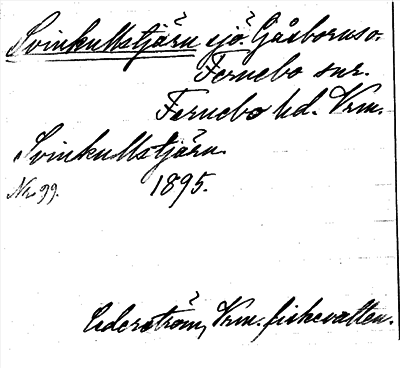 Svinkullstjärn sjö. Gåsborns o.
Fernebo snr.
Fernebo hd. Vrm.
Svinkullstjärn.
Nr 99. 1895.
Cederström, Vrm. fiskevatten.